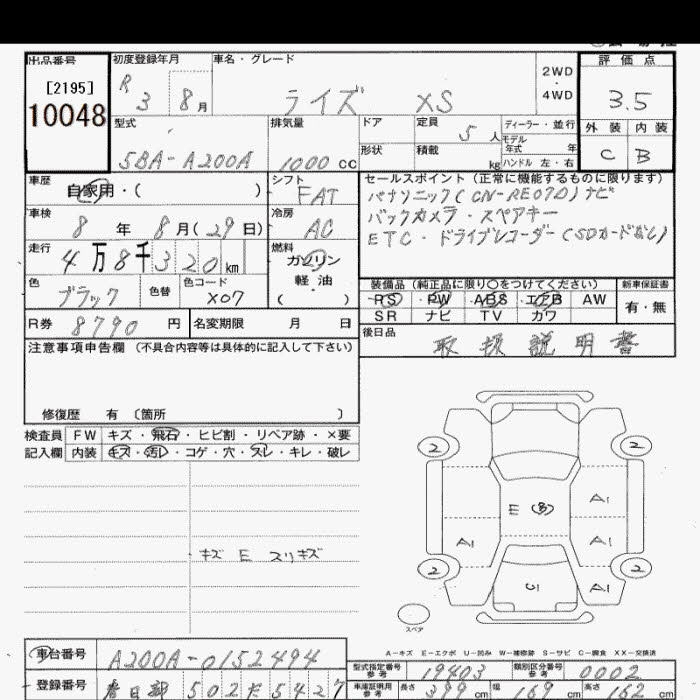 出品番号
[2195]
10048
初度登録年月
R 3 8月
車名・グレード
ライズ XS
2WD
・
4WD
評価点
3.5
外装 内装
C B
型式
5BA-A200A
排気量
1000 cc
ドア
形状
定員 5人
積載 kg
ディーラー・並行
モデル年式 年
ハンドル 左・右
車歴
自家用・( )
シフト
FAT
車検
8年 8月(29日)
冷房
AC
走行
4万8千320km
燃料
ガソリン
軽油
( )
色
ブラック
色替
色コード
X07
R券 8790円
名変期限 月 日
セールスポイント (正常に機能するものに限ります)
パナソニック(CN-RE07D)ナビ
バックカメラ・スペアキー
ETC・ドライブレコーダー(SDカードなし)
装備品 (純正品に限り○をつけてください)
PS PW ABS エアB AW
SR ナビ TV カワ
新車保証書
有・無
後日品
取扱説明書
注意事項申告欄 (不具合内容等は具体的に記入して下さい)
修復歴 有 〔箇所 〕
検査員 FW キズ・飛石・ヒビ割・リペア跡・×要
記入欄 内装 キズ・汚レ・コゲ・穴・スレ・キレ・破レ
キズ E スリキズ
2 2
E (B) A1
A1 A1
2 2
C1 A1
スペア
A-キズ E-エクボ U-凹み W-補修跡 S-サビ C-腐食 XX-交換済
車台番号 A200A-0152494
型式指定番号 参考 19403
類別区分番号 参考 0002
登録番号 春日部 502 だ 5427
車庫証明用 参考 長さ 399cm 幅 169cm 高さ 162cm